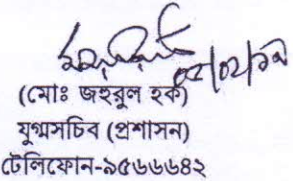 (মোঃ জহুরুল হক)
যুগ্মসচিব (প্রশাসন)
টেলিফোন-৯৫৬৬৬৪২